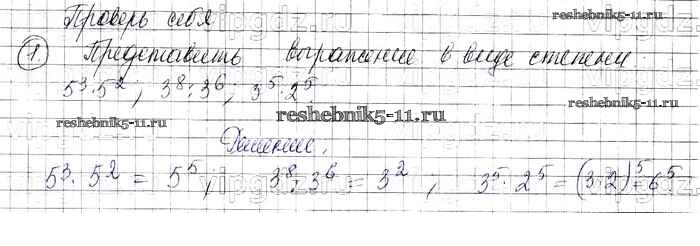 Проверь себя
reshebnik5-11.ru
1. Представить выражение в виде степени
5³·5², 3⁸:3⁶, 3⁵·2⁵
reshebnik5-11.ru
reshebnik5-11.ru
reshebnik5-11.ru
Решение.
5³·5² = 5⁵, 3⁸:3⁶ = 3², 3⁵·2⁵ = (3·2)⁵ = 6⁵